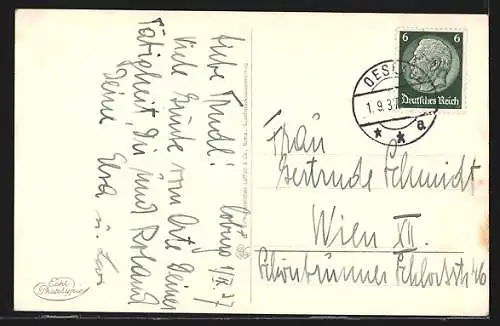 Coburg 1/IX. 37
Liebe Trudl!
Viele Grüße vom Orte Deiner
Tätigkeit Dir und Roland
Deine Elsa u.
6 6
Deutsches Reich
1.9.37
* * a
Frau
Gertrude Schmidt
Wien XII.
Schönbrunner Schlossstr 46
Echt
Photographie